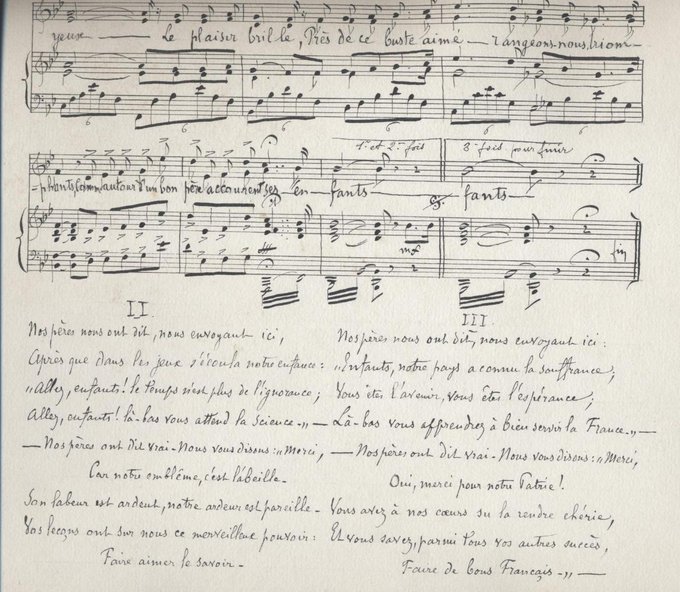 yeux — Le plaisir brille, Près de ce buste aimé — rangeons-nous, triom-
6 6 6 6 6 6
1re et 2e fois 3e fois pour finir
-phants, Comm' autour d'un bon père accourent ses en- fants — fants —
mf fin
II
Nos pères nous ont dit, nous envoyant ici,
Après que dans les jeux s'écoula notre enfance :
"Allez, enfants ! le temps n'est plus de l'ignorance ;
Allez, enfants ! là-bas vous attend la Science." —
— Nos pères ont dit vrai - Nous vous disons : "Merci,
Car notre emblême, c'est l'abeille -
Son labeur est ardent, notre ardeur est pareille -
Vos leçons ont sur nous ce merveilleux pouvoir :
Faire aimer le savoir -
III
Nos pères nous ont dit, nous envoyant ici :
"Enfants, notre pays a connu la souffrance ;
Vous êtes l'avenir, vous êtes l'espérance ;
Là-bas vous apprendrez à bien servir la France." —
— Nos pères ont dit vrai - Nous vous disons : "Merci,
Oui, merci pour notre Patrie !
Vous avez à nos cœurs su la rendre chérie,
Et vous savez, parmi tous vos autres succès,
Faire de bons Français -" —